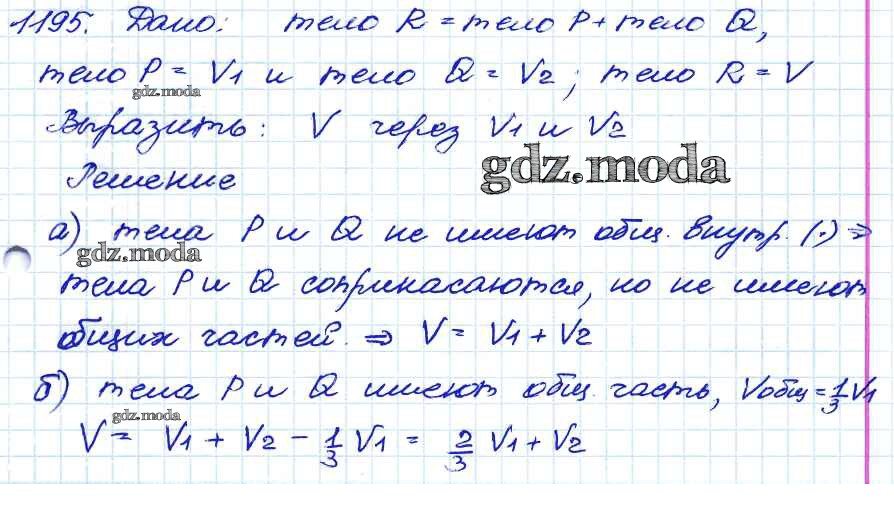 1195. Дано: тело R = тело P + тело Q,
тело P = V1 и тело Q = V2; тело R = V
gdz.moda
Выразить: V через V1 и V2
gdz.moda
Решение
а) тела P и Q не имеют общ. внутр. (·) ⇒
gdz.moda
тела P и Q соприкасаются, но не имеют
общих частей. ⇒ V = V1 + V2
б) тела P и Q имеют общ. часть, Vобщ = 1/3 V1
gdz.moda
V = V1 + V2 - 1/3 V1 = 2/3 V1 + V2